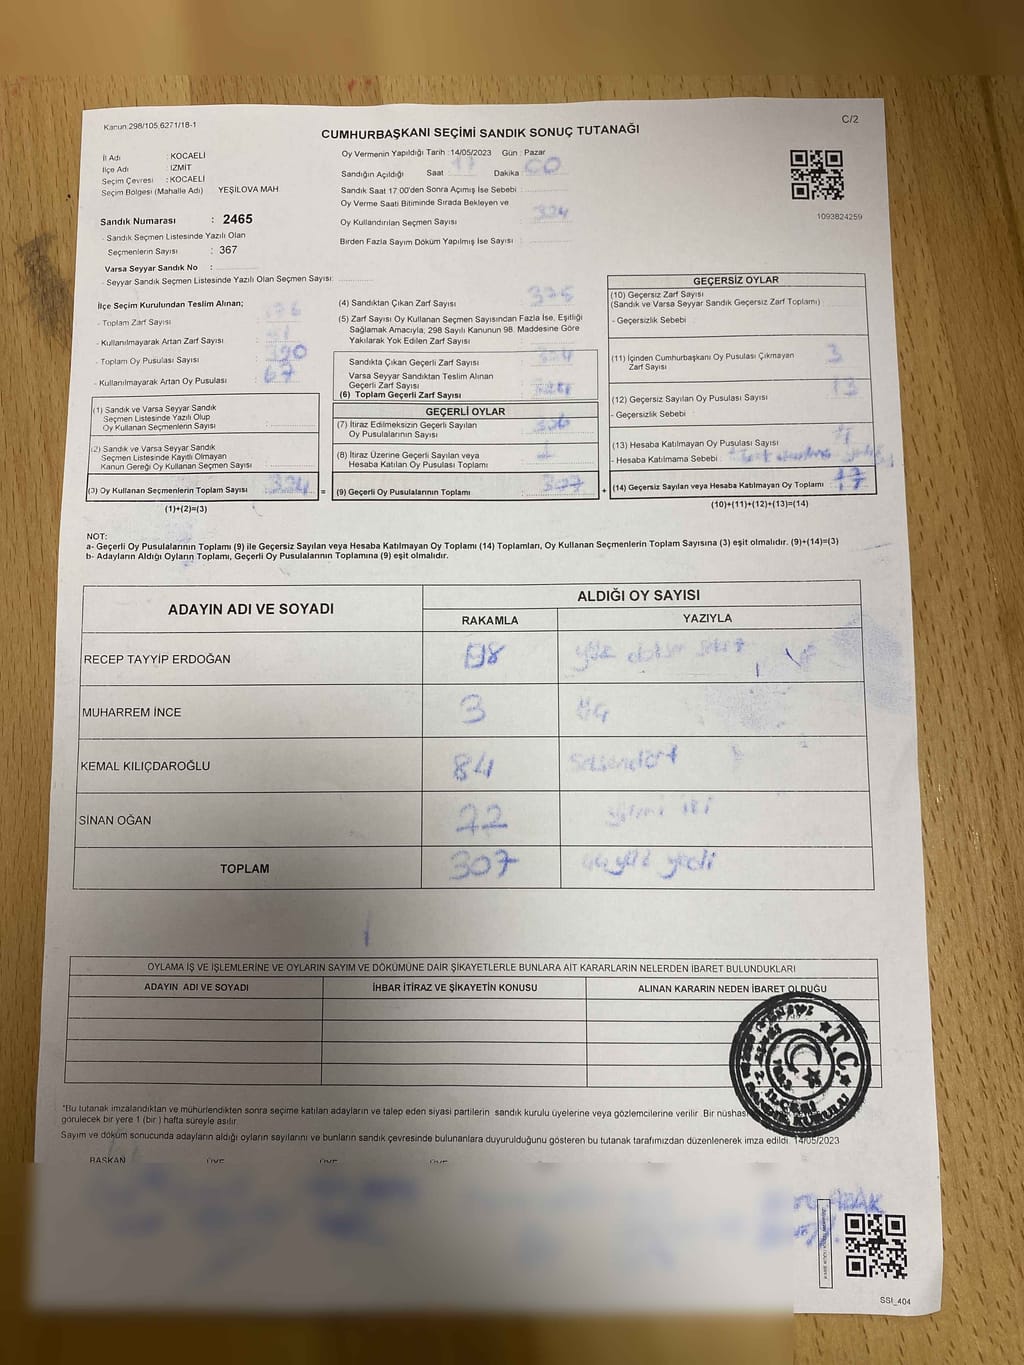 Kanun.298/105.6271/18-1
C/2
CUMHURBAŞKANI SEÇİMİ SANDIK SONUÇ TUTANAĞI
İl Adı : KOCAELİ
İlçe Adı : İZMİT
Seçim Çevresi : KOCAELİ
Seçim Bölgesi (Mahalle Adı) YEŞİLOVA MAH
Sandık Numarası : 2465
- Sandık Seçmen Listesinde Yazılı Olan
Seçmenlerin Sayısı : 367
Varsa Seyyar Sandık No :
- Seyyar Sandık Seçmen Listesinde Yazılı Olan Seçmen Sayısı:
Oy Vermenin Yapıldığı Tarih :14/05/2023 Gün : Pazar
Sandığın Açıldığı Saat 17 Dakika 00
Sandık Saat 17.00'den Sonra Açımış İse Sebebi :
Oy Verme Saati Bitiminde Sırada Bekleyen ve
Oy Kullandırılan Seçmen Sayısı : 324
Birden Fazla Sayım Döküm Yapılmış İse Sayısı :
1093824259
İlçe Seçim Kurulundan Teslim Alınan;
- Toplam Zarf Sayısı :
- Kullanılmayarak Artan Zarf Sayısı :
- Toplam Oy Pusulası Sayısı :
- Kullanılmayarak Artan Oy Pusulası : 67
(1) Sandık ve Varsa Seyyar Sandık
Seçmen Listesinde Yazılı Olup
Oy Kullanan Seçmenlerin Sayısı :
(2) Sandık ve Varsa Seyyar Sandık
Seçmen Listesinde Kayıtlı Olmayan
Kanun Gereği Oy Kullanan Seçmen Sayısı :
(3) Oy Kullanan Seçmenlerin Toplam Sayısı : 324 =
(1)+(2)=(3)
(4) Sandıktan Çıkan Zarf Sayısı :
(5) Zarf Sayısı Oy Kullanan Seçmen Sayısından Fazla İse, Eşitliği
Sağlamak Amacıyla; 298 Sayılı Kanunun 98. Maddesine Göre
Yakılarak Yok Edilen Zarf Sayısı :
Sandıkta Çıkan Geçerli Zarf Sayısı : 324
Varsa Seyyar Sandıktan Teslim Alınan
Geçerli Zarf Sayısı :
(6) Toplam Geçerli Zarf Sayısı : 324
GEÇERLİ OYLAR
(7) İtiraz Edilmeksizin Geçerli Sayılan
Oy Pusulalarının Sayısı : 306
(8) İtiraz Üzerine Geçerli Sayılan veya
Hesaba Katılan Oy Pusulası Toplamı : 1
(9) Geçerli Oy Pusulalarının Toplamı : 307 +
GEÇERSİZ OYLAR
(10) Geçersiz Zarf Sayısı
(Sandık ve Varsa Seyyar Sandık Geçersiz Zarf Toplamı) :
- Geçersizlik Sebebi :
(11) İçinden Cumhurbaşkanı Oy Pusulası Çıkmayan
Zarf Sayısı : 3
(12) Geçersiz Sayılan Oy Pusulası Sayısı : 13
- Geçersizlik Sebebi :
(13) Hesaba Katılmayan Oy Pusulası Sayısı : 1
- Hesaba Katılmama Sebebi :
(14) Geçersiz Sayılan veya Hesaba Katılmayan Oy Toplamı : 17
(10)+(11)+(12)+(13)=(14)
NOT:
a- Geçerli Oy Pusulalarının Toplamı (9) ile Geçersiz Sayılan veya Hesaba Katılmayan Oy Toplamı (14) Toplamları, Oy Kullanan Seçmenlerin Toplam Sayısına (3) eşit olmalıdır. (9)+(14)=(3)
b- Adayların Aldığı Oyların Toplamı, Geçerli Oy Pusulalarının Toplamına (9) eşit olmalıdır.
ADAYIN ADI VE SOYADI ALDIĞI OY SAYISI
RAKAMLA YAZIYLA
RECEP TAYYİP ERDOĞAN 198 yüz doksan sekiz
MUHARREM İNCE 3 üç
KEMAL KILIÇDAROĞLU 84 Seksendört
SİNAN OĞAN 22 yirmi iki
TOPLAM 307 üçyüz yedi
OYLAMA İŞ VE İŞLEMLERİNE VE OYLARIN SAYIM VE DÖKÜMÜNE DAİR ŞİKAYETLERLE BUNLARA AİT KARARLARIN NELERDEN İBARET BULUNDUKLARI
ADAYIN ADI VE SOYADI İHBAR İTİRAZ VE ŞİKAYETİN KONUSU ALINAN KARARIN NEDEN İBARET OLDUĞU
T.C.
SANDIK KURULU
*Bu tutanak imzalandıktan ve mühürlendikten sonra seçime katılan adayların ve talep eden siyasi partilerin sandık kurulu üyelerine veya gözlemcilerine verilir. Bir nüshas
görülecek bir yere 1 (bir) hafta süreyle asılır.
Sayım ve döküm sonucunda adayların aldığı oyların sayılarını ve bunların sandık çevresinde bulunanlara duyurulduğunu gösteren bu tutanak tarafımızdan düzenlenerek imza edildi. 14/05/2023
BAŞKAN ÜYE ÜYE ÜYE
SSI_404